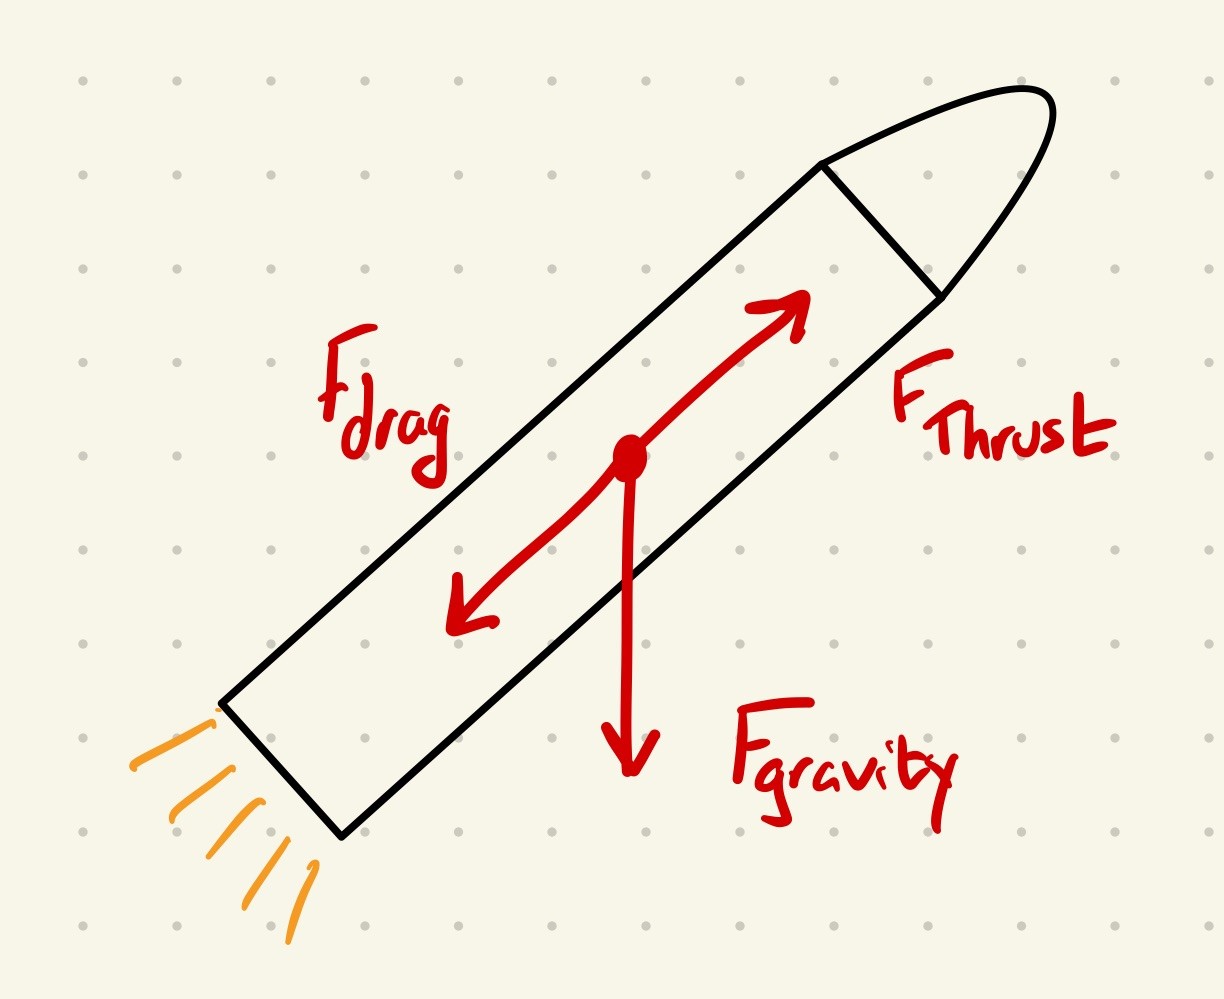 Fdrag
FThrust
Fgravity